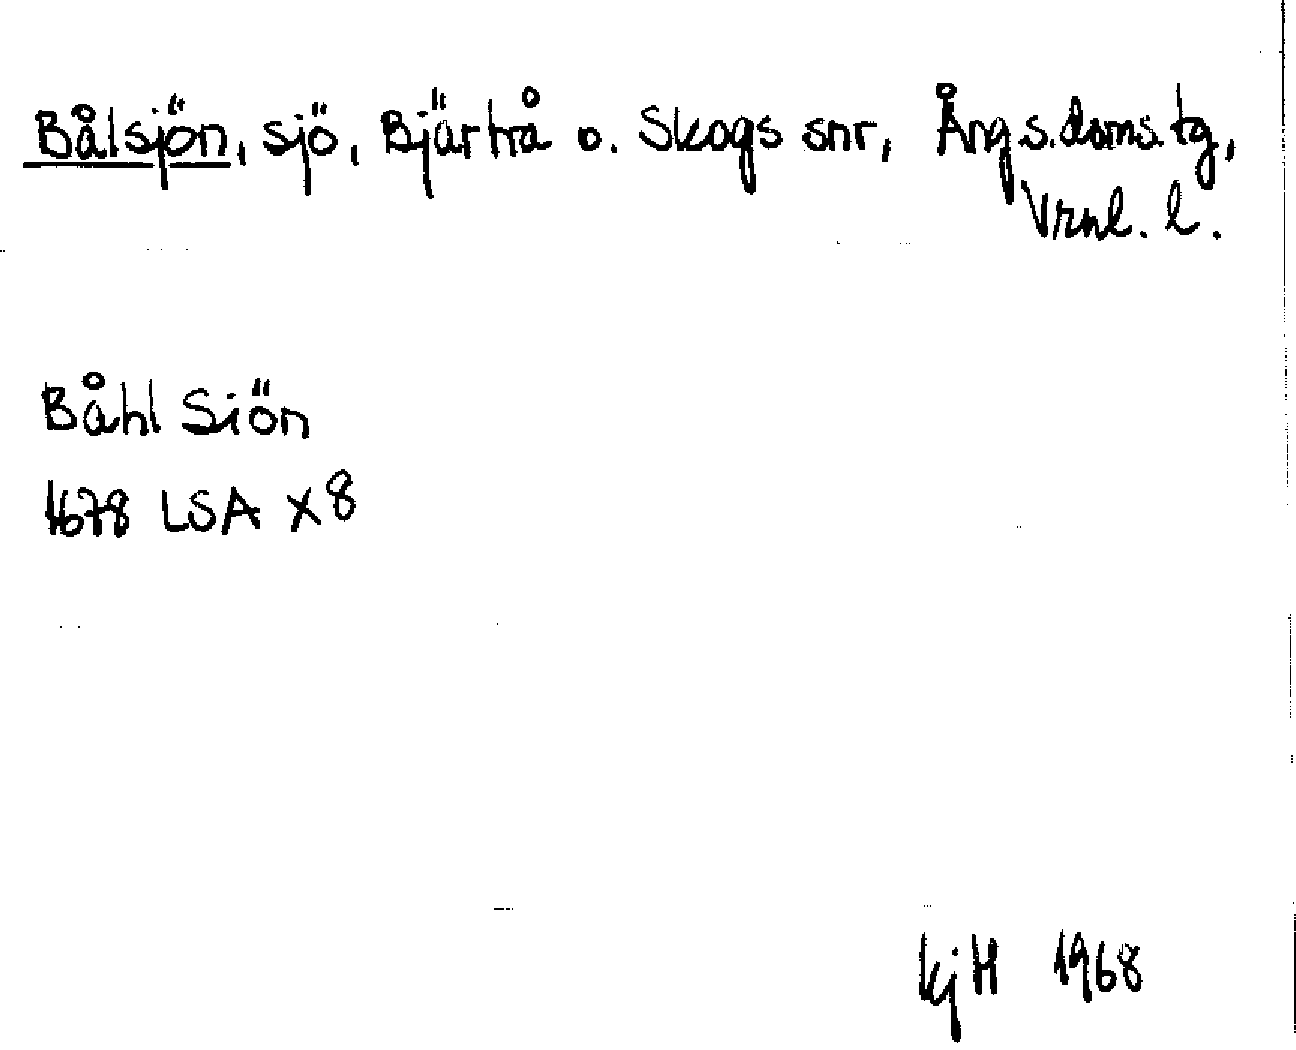 Bålsjön, sjö, Bjärtrå o. Skogs snr, Ång s. doms. tg,
Vrnl. l.
Båhl Siön
1678 LSA X8
kjH 1968